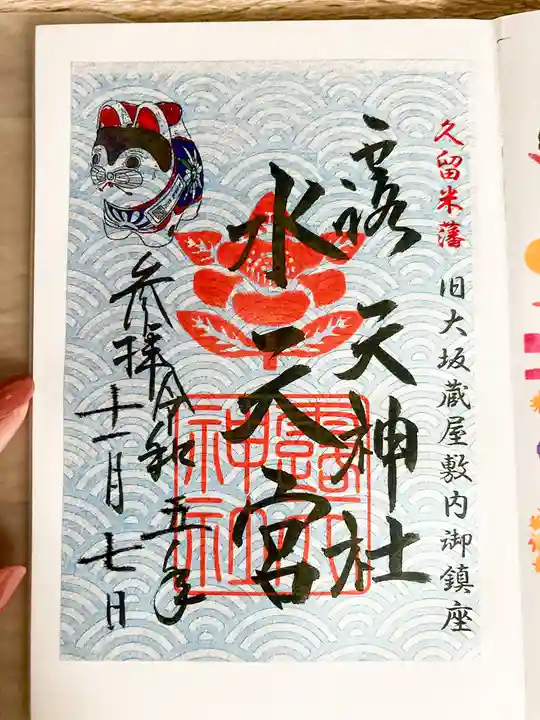 久留米藩 旧大坂蔵屋敷内御鎮座
露天神社
水天宮
参拝 令和五年
十一月七日
露天神社